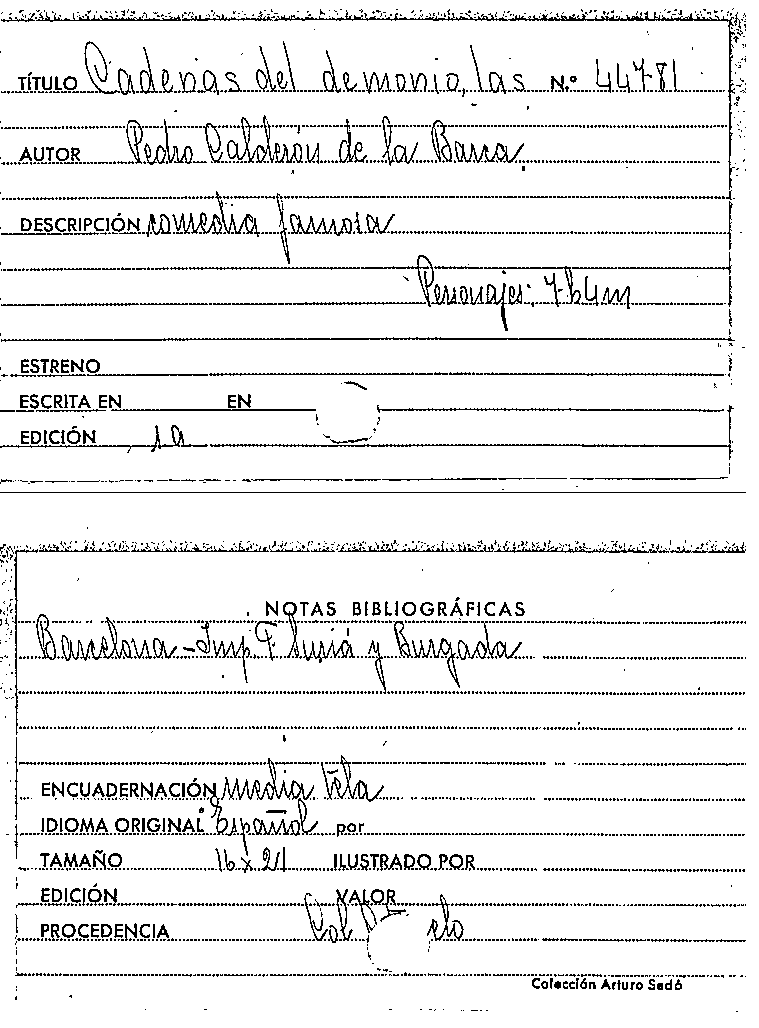 TÍTULO Cadenas del demonio, las N.º 44781
AUTOR Pedro Calderón de la Barca
DESCRIPCIÓN comedia famosa
Personajes: 7h4m
ESTRENO
ESCRITA EN EN
EDICIÓN 1a
NOTAS BIBLIOGRÁFICAS
Barcelona - Imp. F Suriá y Burgada
ENCUADERNACIÓN media tela
IDIOMA ORIGINAL Español por
TAMAÑO 16 x 21 ILUSTRADO POR
EDICIÓN VALOR
PROCEDENCIA Col
Colección Arturo Sedó